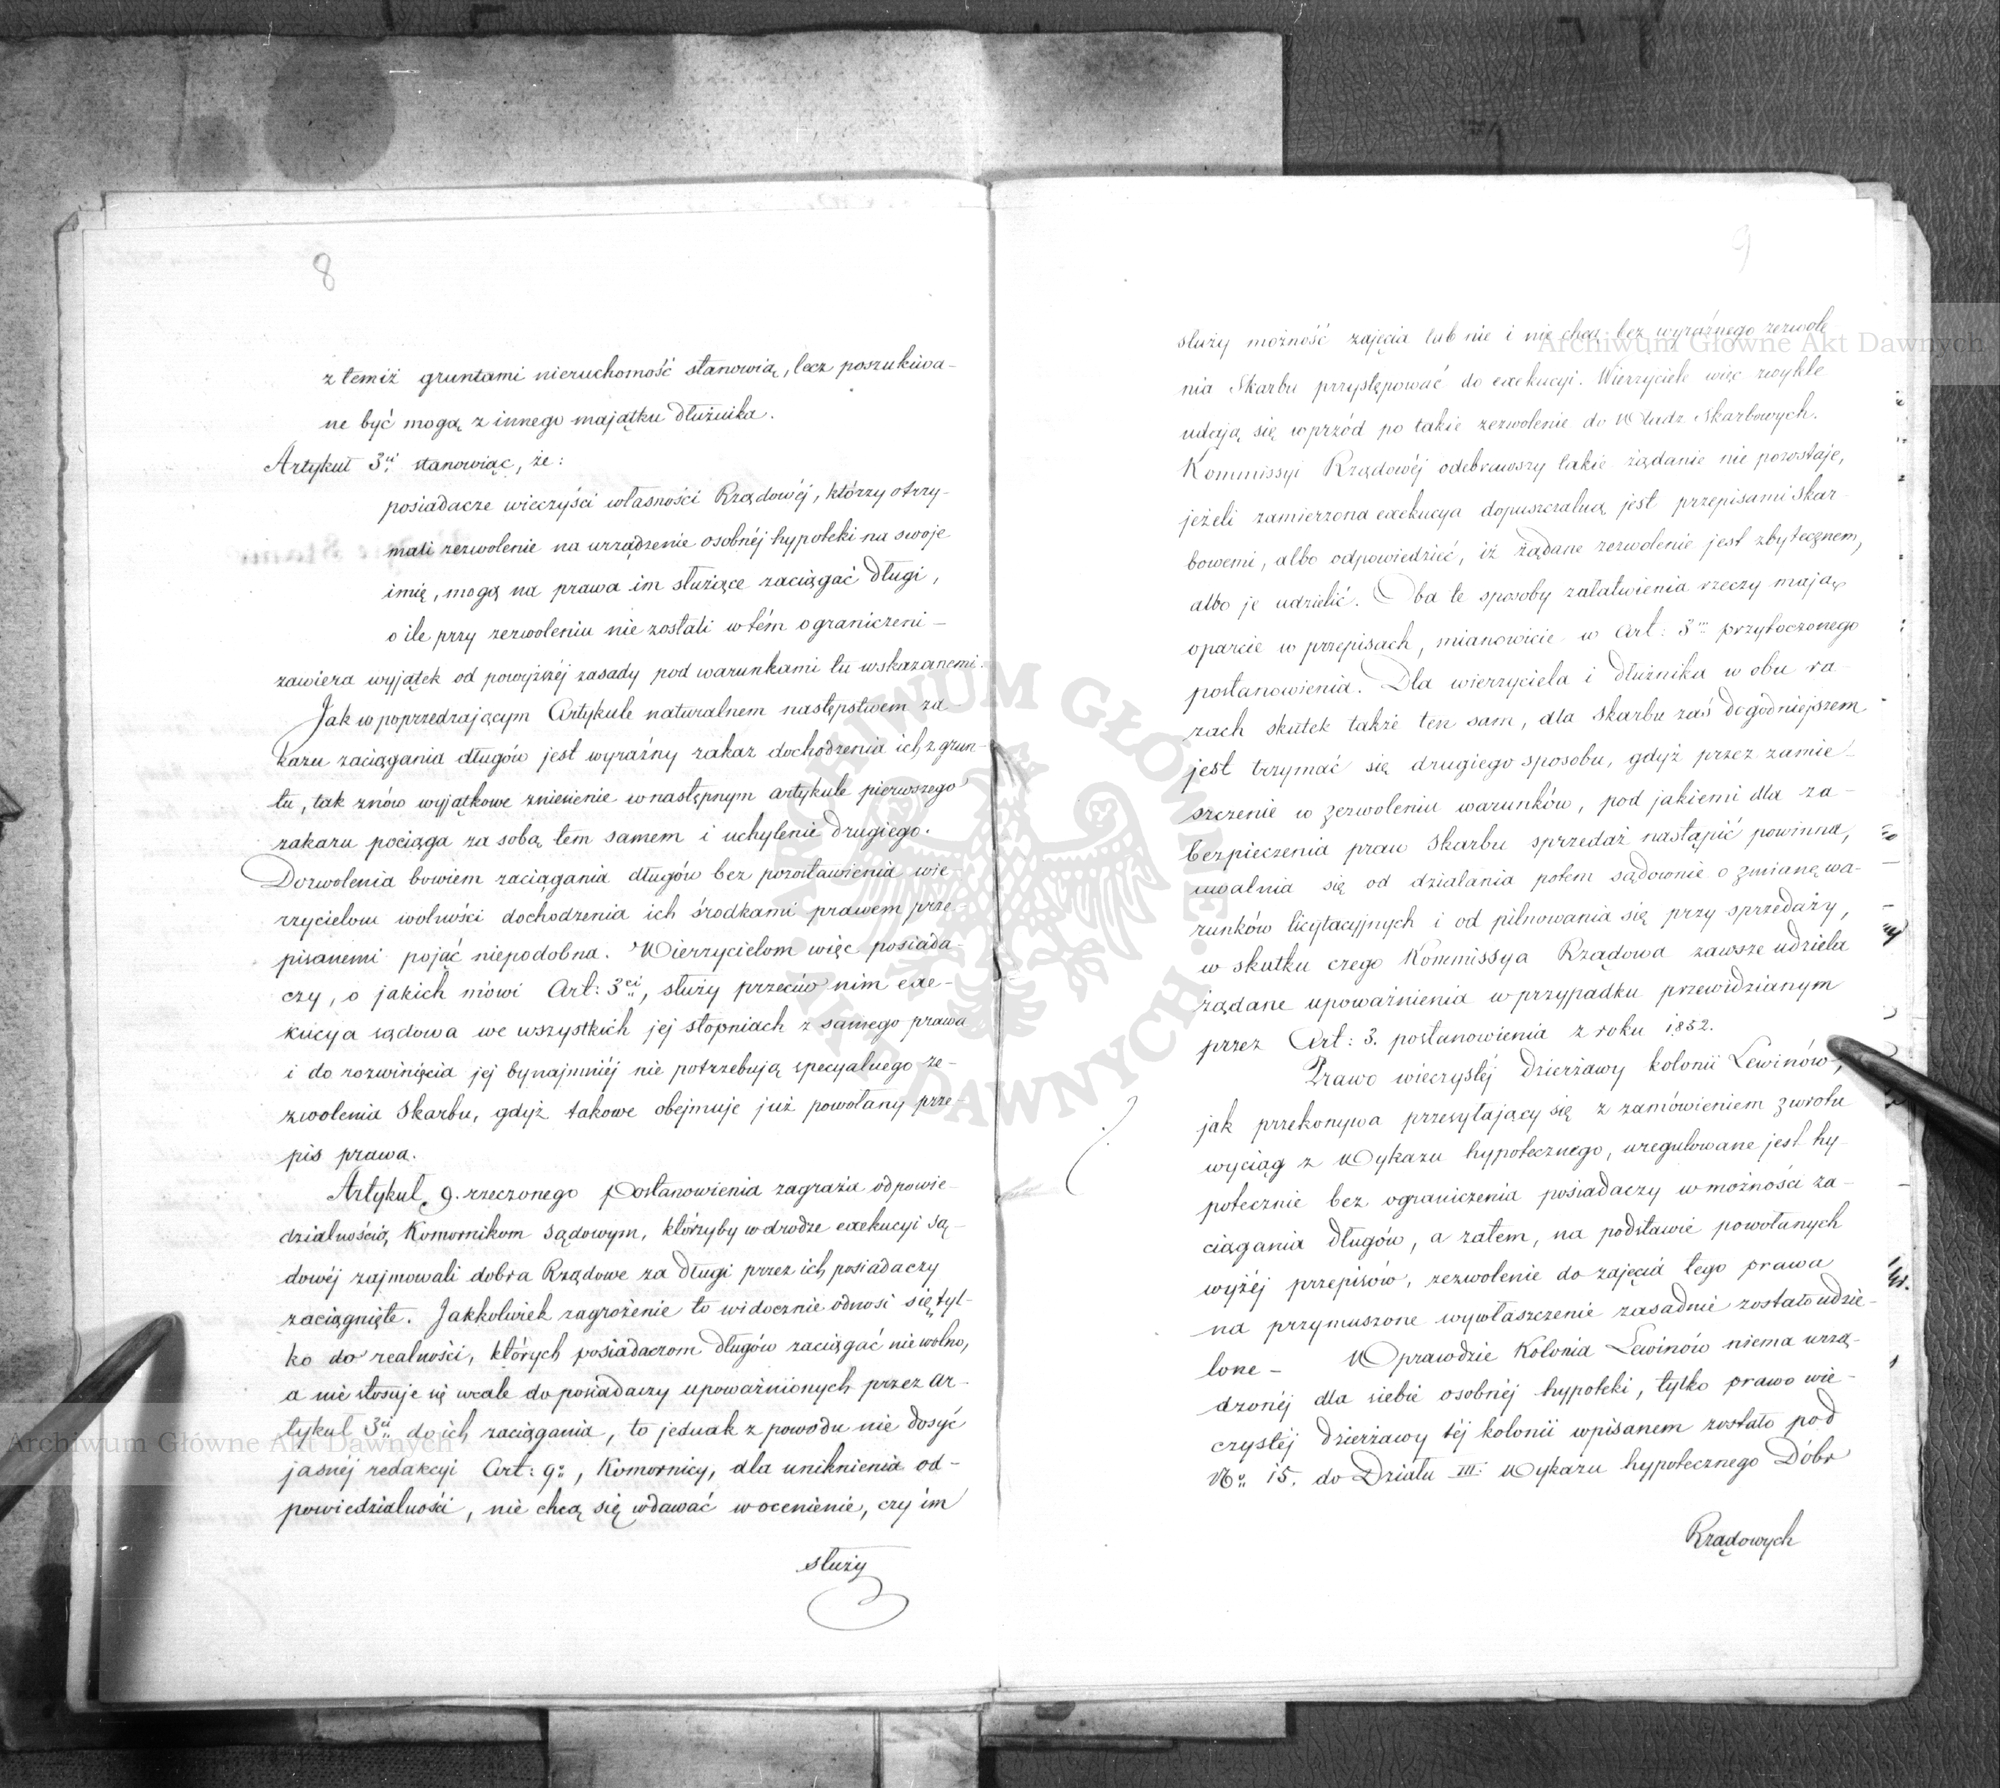 8
z temiż gruntami nieruchomość stanowią, lecz poszukiwa-
ne być mogą z innego majątku dłużnika.
Artykuł 3ci stanowiąc, że:
posiadacze wieczyści własności Rządowéj, którzy otrzy-
mali zezwolenie na urządzenie osobnéj hypoteki na swoje
imię, mogą na prawa im służące zaciągać długi,
o ile przy zezwoleniu nie zostali w tém ograniczeni –
zawiera wyjątek od powyższéj zasady pod warunkami tu wskazanemi.
Jak w poprzedzającym Artykule naturalnem następstwem za-
kazu zaciągania długów jest wyraźny zakaz dochodzenia ich z grun-
tu, tak znów wyjątkowe zniesienie w następnym artykule pierwszego
zakazu pociąga za sobą tem samem i uchylenie drugiego.
Dozwolenia bowiem zaciągania długów bez pozostawienia wie-
rzycielom wolności dochodzenia ich środkami prawem prze-
pisanemi pojąć niepodobna. Wierzycielom więc posiada-
czy, o jakich mówi Art: 3ci, służy przeciw nim exe-
kucya sądowa we wszystkich jej stopniach z samego prawa
i do rozwinięcia jej bynajmniéj nie potrzebują specyalnego ze-
zwolenia Skarbu, gdyż takowe obejmuje już powołany prze-
pis prawa.
Artykuł 9. rzeczonego Postanowienia zagraża odpowie-
dzialnością Komornikom Sądowym, którzyby w drodze exekucyi są-
dowéj zajmowali dobra Rządowe za długi przez ich posiadaczy
zaciągnięte. Jakkolwiek zagrożenie to widocznie odnosi się tyl-
ko do realności, których posiadaczom długów zaciągać nie wolno,
a nie stosuje się wcale do posiadaczy upoważnionych przez ar-
tykuł 3ci do ich zaciągania, to jednak z powodu nie dosyć
jasnéj redakcyi Art: 9o, Komornicy, dla uniknienia od-
powiedzialności, nie chcą się wdawać w ocenienie, czy im
służy
9
służy możność zajęcia lub nie i nie chcą bez wyraźnego zezwole
nia Skarbu przystępować do exekucyi. Wierzyciele więc zwykle
udają się wprzód po takie zezwolenie do Władz Skarbowych.
Kommissyi Rządowéj odebrawszy takie żądanie nie pozostaje,
jeżeli zamierzona exekucya dopuszczalną jest przepisami Skar-
bowemi, albo odpowiedzieć, iż żądane zezwolenie jest zbytecznem,
albo je udzielić. Oba te sposoby załatwienia rzeczy mają
oparcie w przepisach, mianowicie w Art: 3m przytoczonego
postanowienia. Dla wierzyciela i dłużnika w obu ra-
zach skutek także ten sam, dla Skarbu zaś dogodniejszem
jest trzymać się drugiego sposobu, gdyż przez zamie-
szczenie w zezwoleniu warunków, pod jakiemi dla za-
bezpieczenia praw Skarbu sprzedaż nastąpić powinna,
uwalnia się od działania potem sądownie o zmianę wa-
runków licytacyjnych i od pilnowania się przy sprzedaży,
w skutku czego Kommissya Rządowa zawsze udziela
żądane upoważnienia w przypadku przewidzianym
przez Art: 3. postanowienia z roku 1852.
Prawo wieczystéj dzierżawy kolonii Lewinów,
jak przekonywa przesyłający się z zamówieniem zwrotu
wyciąg z Wykazu hypotecznego, uregulowane jest hy-
potecznie bez ograniczenia posiadaczy w możności za-
ciągania długów, a zatem, na podstawie powołanych
wyżéj przepisów, zezwolenie do zajęcia tego prawa
na przymuszone wywłaszczenie zasadnie zostało udzie-
lone – Wprawdzie Kolonia Lewinów niema urzą-
dzonéj dla siebie osobnéj hypoteki, tylko prawo wie-
czystéj dzierżawy téj kolonii wpisanem zostało pod
No 15. do Działu III. Wykazu hypotecznego Dóbr
Rządowych
Archiwum Główne Akt Dawnych
Archiwum Główne Akt Dawnych
ARCHIWUM GŁÓWNE AKT DAWNYCH